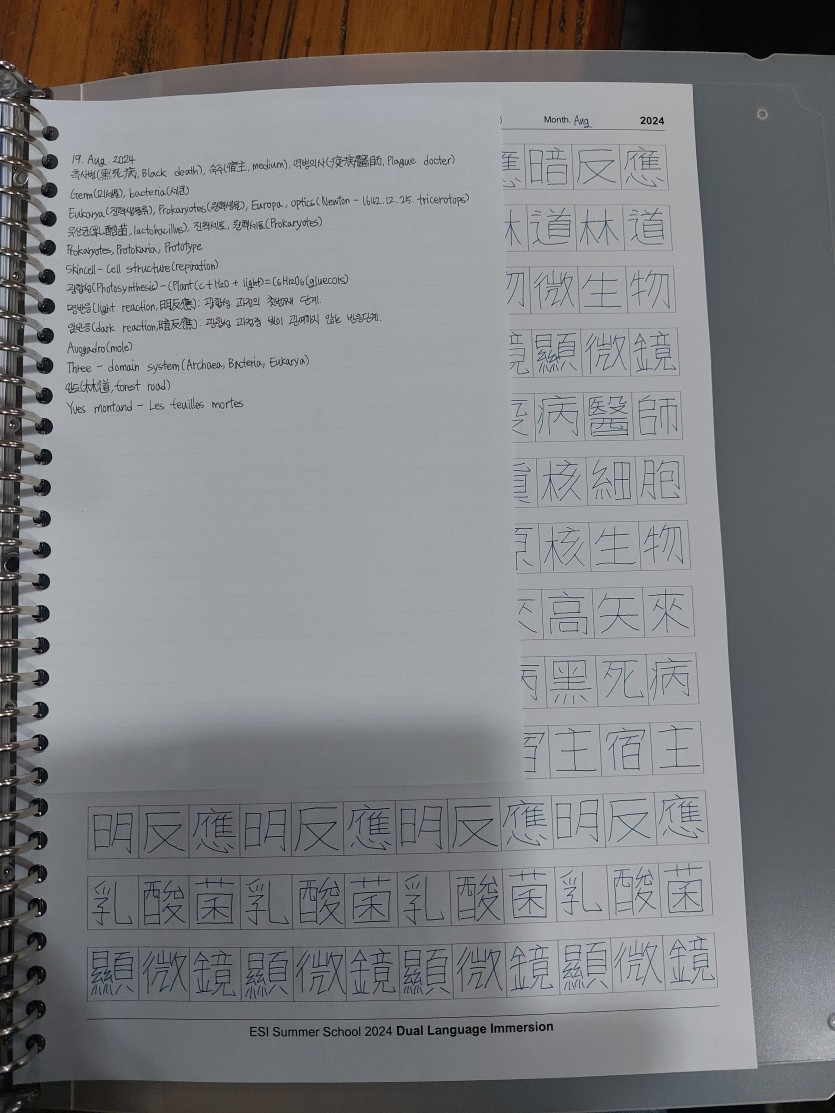 19. Aug 2024
흑사병(黑死病, Black death), 숙주(宿主, medium), 역병의사(疫病醫師, Plague docter)
Germ(미생물), bacteria(세균)
Eukarya(진핵생물류), Prokaryotes(원핵생물), Europa, optics(Newton - 1642.12.25. tricerotops)
유산균(乳酸菌, lactobacillus), 진핵세포, 원핵세포(Prokaryotes)
Prokaryotes, Protokaria, Prototype
Skincell - Cell structure(repiration)
광합성(Photosynthesis) - (Plant(c + H2O + light) = C6H12O6(gluecors)
명반응(light reaction, 明反應): 광합성 과정의 첫번째 단계.
암반응(dark reaction, 暗反應): 광합성 과정중 빛이 관여하지 않는 반응단계.
Avogadro(mole)
Three - domain system(Archaea, Bacteria, Eukarya)
임도(林道, forest road)
Yves montand - Les feuilles mortes
Month. Aug 2024
應暗反應
林道林道
物微生物
鏡顯微鏡
疫病醫師
眞核細胞
原核生物
來高矢來
病黑死病
宿主宿主
明反應明反應明反應明反應
乳酸菌乳酸菌乳酸菌乳酸菌
顯微鏡顯微鏡顯微鏡顯微鏡
ESI Summer School 2024 Dual Language Immersion